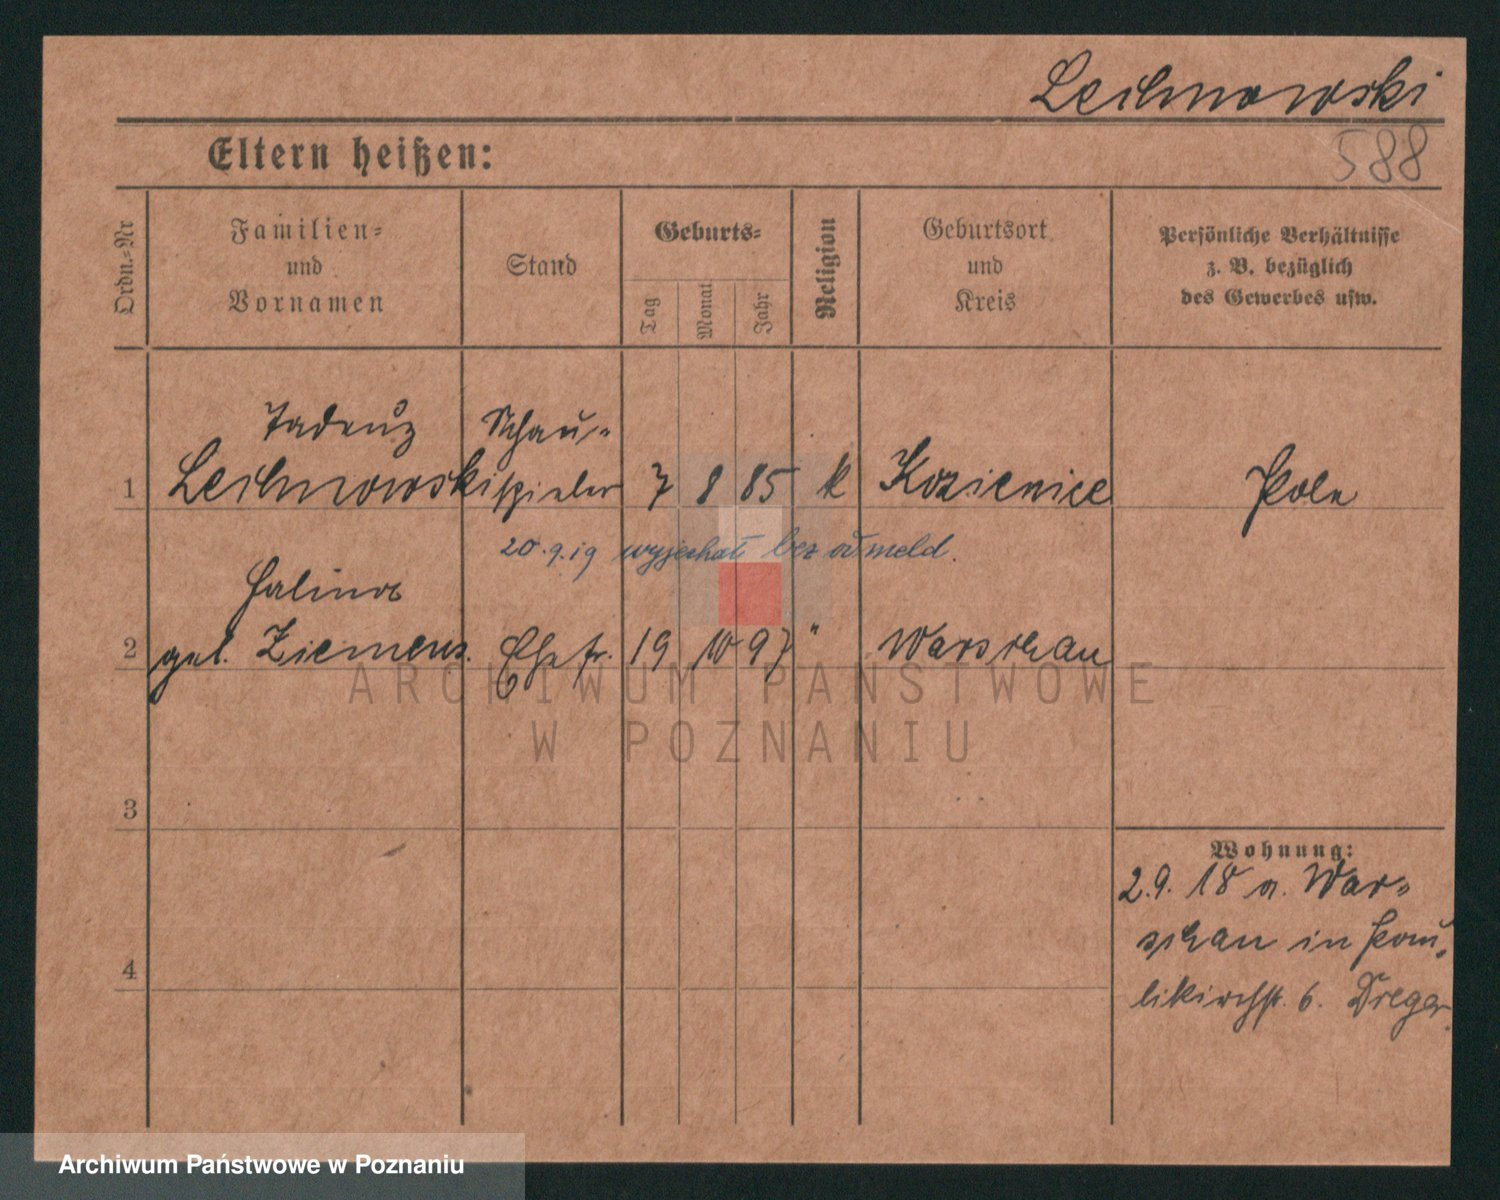 Lechnowski
588
Eltern heißen:
Ordn.-Nr
Familien-
und
Vornamen
Stand
Geburts-
Tag
Monat
Jahr
Religion
Geburtsort
und
Kreis
Persönliche Verhältnisse
z. B. bezüglich
des Gewerbes usw.
Tadeuz Schau-
1 Lechnowski spieler 7 8 85 k Kozienice Pole
20.9.19 wyjechał bez odmeld.
Halina
2 geb. Ziemens. Ehefr. 19 10 97 " Warschau
ARCHIWUM PAŃSTWOWE
W POZNANIU
3
Wohnung:
2.9. 18 a. War-
schau in Pau-
4
likirchstr. 6. Dreger
Archiwum Państwowe w Poznaniu